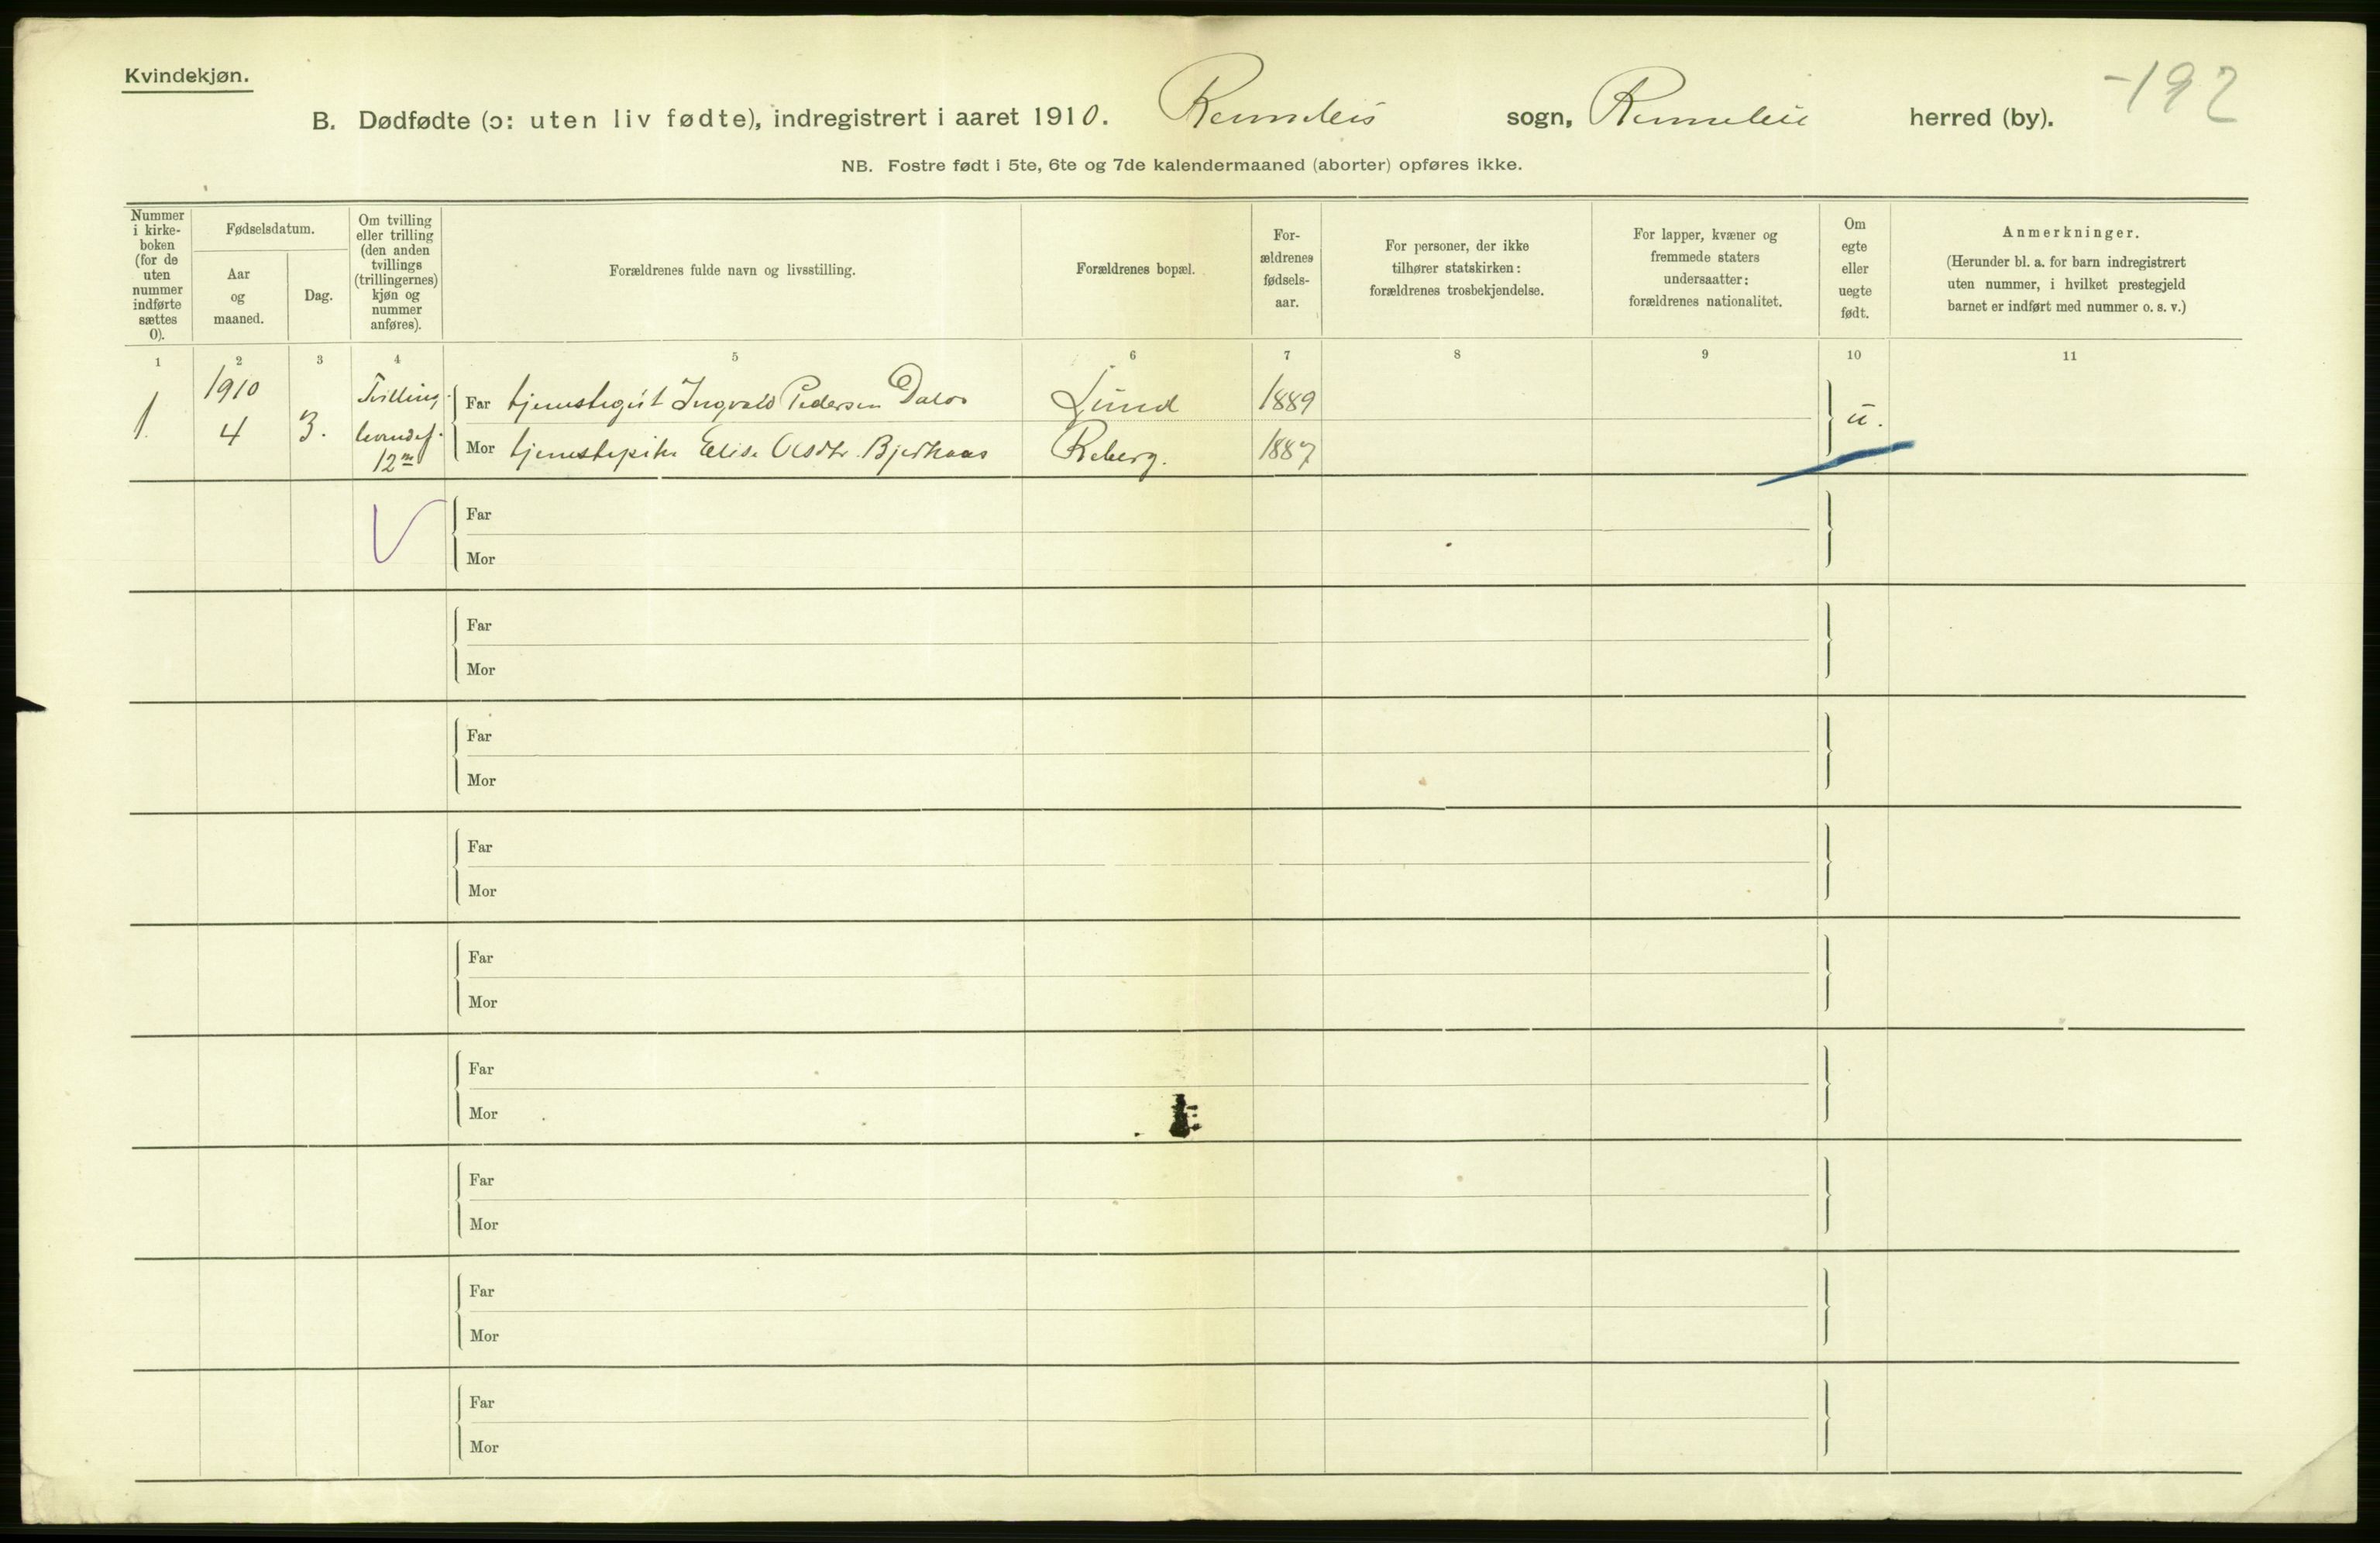 Kvindekjøn.
-192
B. Dødfødte (ɔ: uten liv fødte), indregistrert i aaret 1910. Rennebu sogn, Rennebu herred (by).
NB. Fostre født i 5te, 6te og 7de kalendermaaned (aborter) opføres ikke.
Nummer
i kirke-
boken
(for de
uten
nummer
indførte
sættes
0).
Fødselsdatum.
Aar
og
maaned.
Dag.
Om tvilling
eller trilling
(den anden
tvillings
(trillingernes)
kjøn og
nummer
anføres).
Forældrenes fulde navn og livsstilling.
Forældrenes bopæl.
For-
ældrenes
fødsels-
aar.
For personer, der ikke
tilhører statskirken:
forældrenes trosbekjendelse.
For lapper, kvæner og
fremmede staters
undersaatter:
forældrenes nationalitet.
Om
egte
eller
uegte
født.
Anmerkninger.
(Herunder bl. a. for barn indregistrert
uten nummer, i hvilket prestegjeld
barnet er indført med nummer o. s. v.)
1 2 3 4 5 6 7 8 9 10 11
1. 1910 4 3. Tvilling. levendef. 12
Far tjenestegut Ingvald Pedersen Lund 1889
Mor tjenestepike Elise Olsdtr. Reberg. 1887
u.
Far
Mor
Far
Mor
Far
Mor
Far
Mor
Far
Mor
Far
Mor
Far
Mor
Far
Mor
Far
Mor